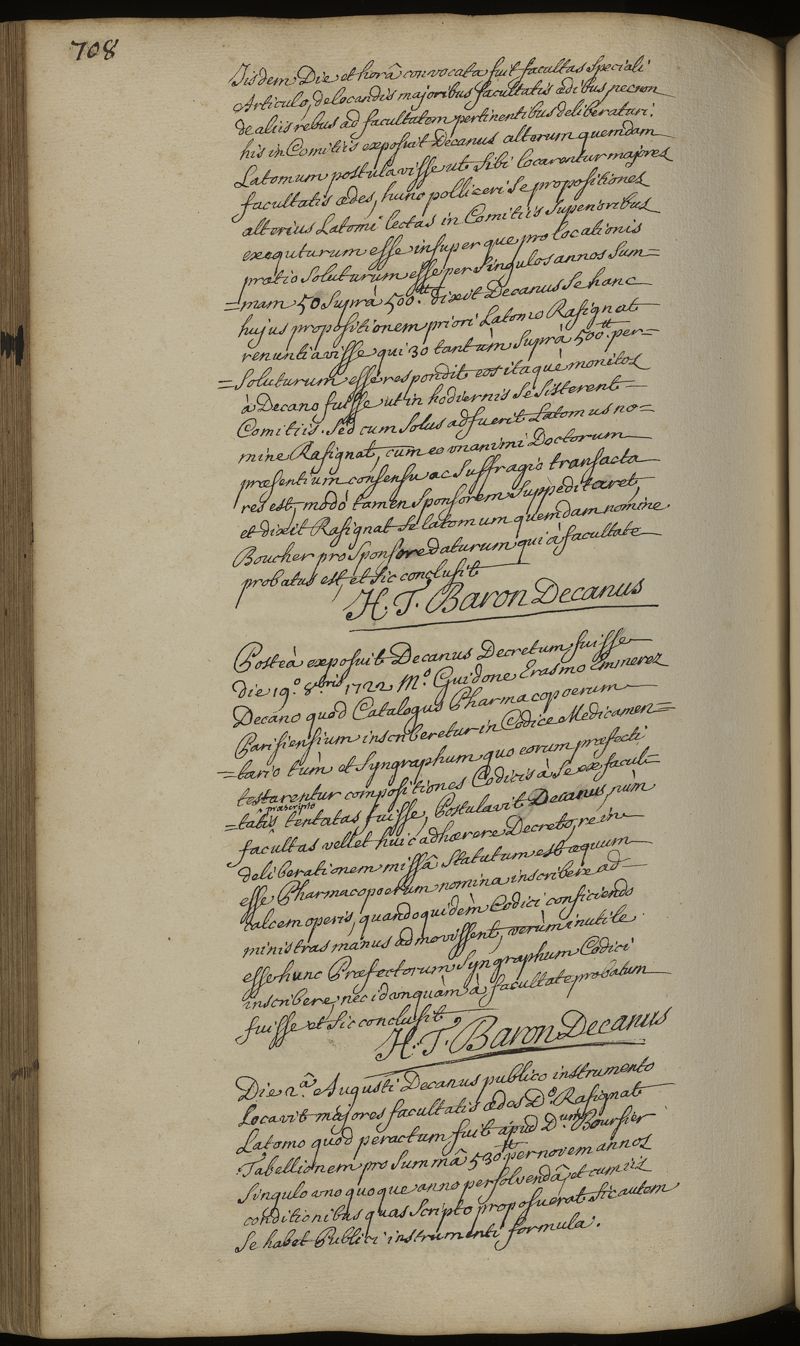 708
Iisdem Die et horâ convocata fuit facultas speciali
Articulo, de locandis majoribus facultatis ædibus necnon
de aliis rebus ad facultatem pertinentibus deliberaturi.
his in Comitiis exposuit Decanus alterum quemdam
Latomum postulavisse ut sibi locarentur majores
facultatis ædes, hunc polliceri se propositiones
alterius Latomi lectas in Comitiis superioribus
exequturum esse insuper que pro locationis
pretio soluturum esse per singulos annos sum=
=mam 50 suprà 500.tt dixit Decanus se hanc
hujus propositionem priori Latomo Rasignat
renuntiavisse qui 30 tantùm suprà 500tt. per=
=soluturum esse respondit eos itaquè monitos
à Decano fuisse ut in hodiernis se sisterent
Comitiis. Sed cum solus adfuerit Latomus no=
mine Rasignat, cum eo unanimi Doctorum
præsentium consensu ac suffragio transacta
res est, modò tamen sponsorem suppeditaret,
et dixit Rasignat se latomum quemdam nomine
Boucher pro sponsore daturum qui à facultate
probatus est, et sic conclusit
H. T. Baron Decanus
Posteà exposuit Decanus Decretum fuisse
die 19.° 8.bris 1722 M.° Guidone Erasmo Emmerez
Decano quod Catalogus Pharmacopoeorum
Parisiensium inscriberetur in Codice Medicamen=
=tario tùm et syngraphum quo eorum præfecti
testarentur compositiones Codicis à se ex facul=
=tatis præscripto tentatas fuisse, Postulavit Decanus, nùm
facultas vellet huic adhærere Decreto, re in
deliberationem missâ statutum est æquum
esse Pharmacopoeorum nomina inscribere ad
calcem operis, quandoquidèm Codici conficiendo
ministras manus admovissent, verùm inutile
esse hunc Præfectorum syngraphum Codici
inscribere, nec id unquàm à facultate probatum
fuisse et sic conclusit
H. T. Baron Decanus
Die 2.â Augusti Decanus publico instrumento
Locavit majores facultatis ædes D.° Rasignat
Latomo quod peractum fuit apud D.um Boursier
Tabellionem pro summâ 530tt. per novem annos
singulo uno quoque anno persolvendâ, et cum iis
conditionibus quas scripto proposuerat sic autem
se habet Publici instrumenti formula.